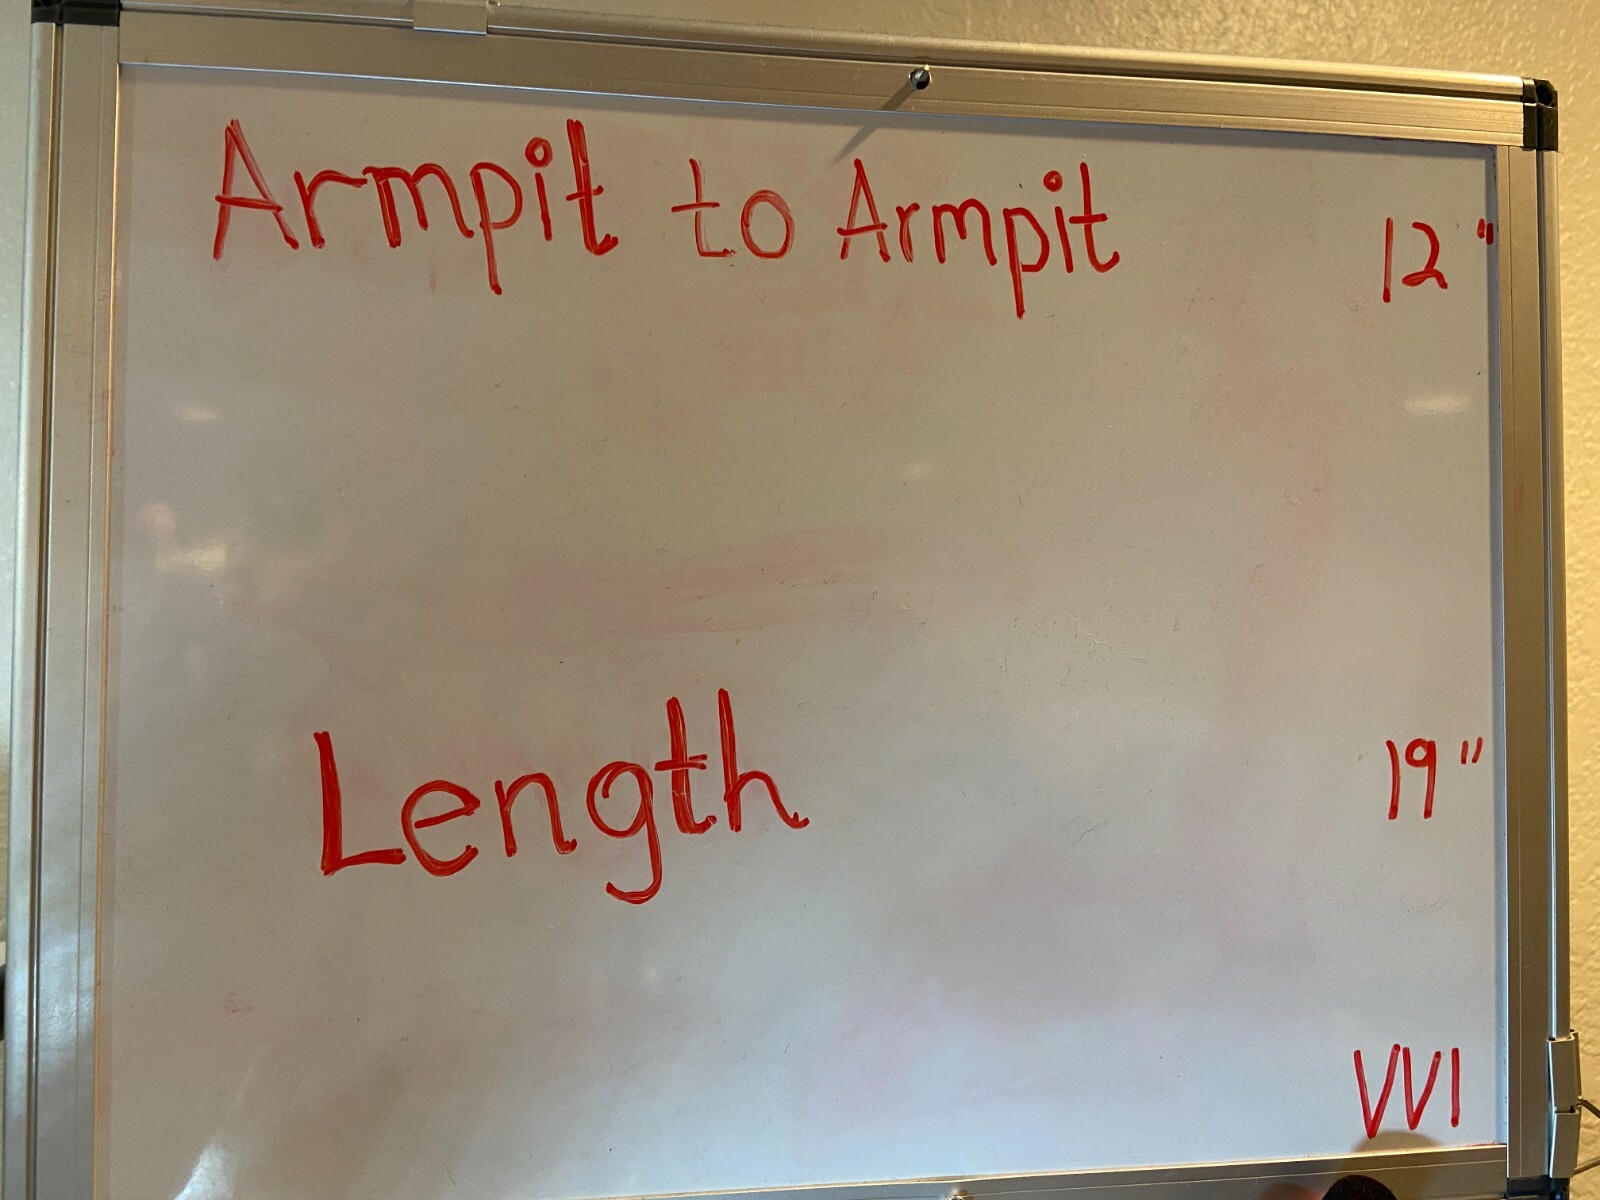 Armpit to Armpit 12"
Length 19"
VVI